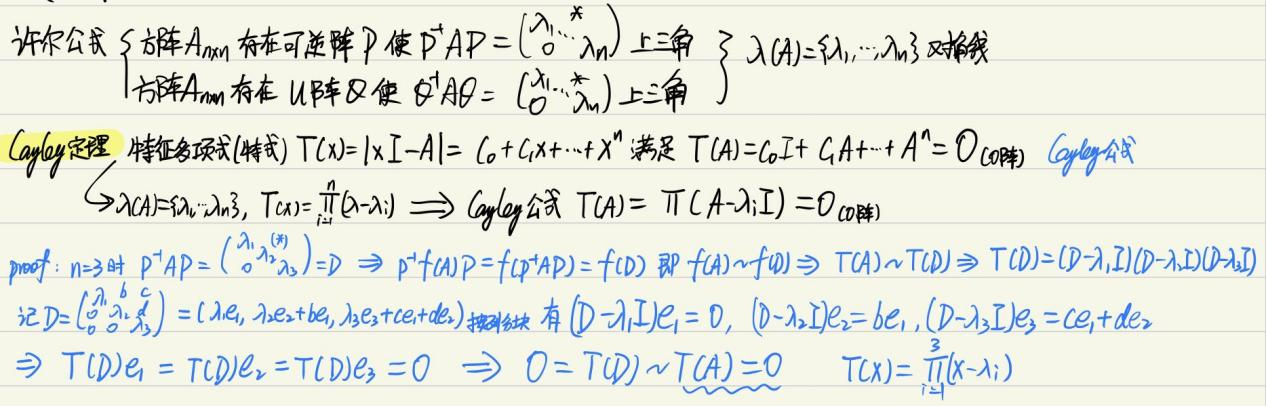 许尔公式 { 方阵Aₙₓₙ 存在可逆阵 P 使 P⁻¹AP = (λ₁ ⋱ * 0 λₙ) 上三角 } λ(A)={λ₁,⋯,λₙ} 对角线
方阵Aₙₓₙ 存在 U阵Q 使 Q⁻¹AQ = (λ₁ ⋱ * 0 λₙ) 上三角
Cayley定理 特征多项式(特式) T(x)=|xI-A|= C₀+C₁x+⋯+xⁿ 满足 T(A)=C₀I+C₁A+⋯+Aⁿ=0(0阵) Cayley公式
↳ λ(A)={λ₁⋯λₙ}, T(x)=∏ⁿᵢ₌₁(λ-λᵢ) ⟹ Cayley公式 T(A)= ∏(A-λᵢI)=0(0阵)
proof: n=3时 P⁻¹AP = (λ₁ (*) λ₂ 0 λ₃) = D ⇒ P⁻¹f(A)P=f(P⁻¹AP)=f(D) 即 f(A)~f(D) ⇒ T(A)~T(D) ⇒ T(D)=(D-λ₁I)(D-λ₂I)(D-λ₃I)
记D=(λ₁ b c 0 λ₂ d 0 0 λ₃) = (λ₁e₁, λ₂e₂+be₁, λ₃e₃+ce₁+de₂) 按列分块 有 (D-λ₁I)e₁=0, (D-λ₂I)e₂=be₁, (D-λ₃I)e₃=ce₁+de₂
⇒ T(D)e₁ = T(D)e₂ = T(D)e₃ = 0 ⟹ 0=T(D)~T(A)=0 T(x)=∏³ᵢ₌₁(x-λᵢ)